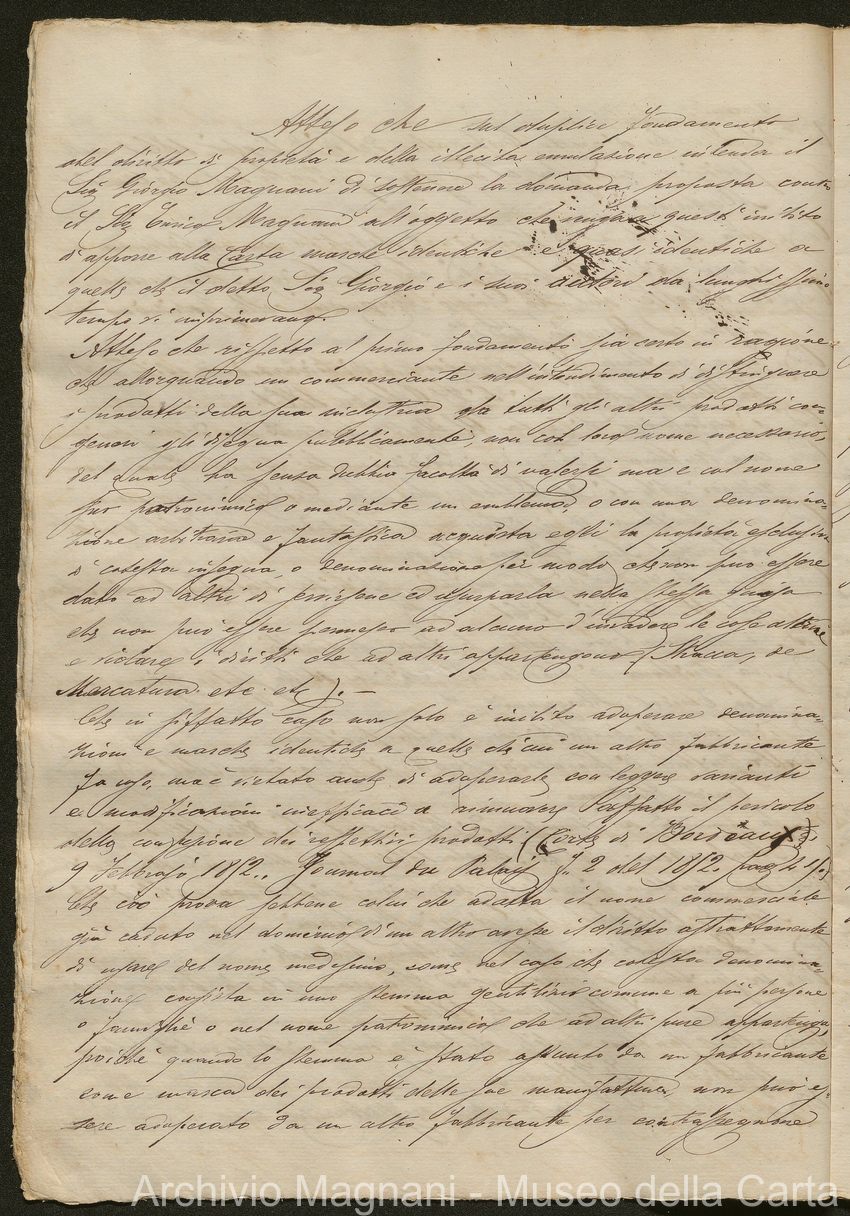 Atteso che sul duplice fondamento
del diritto di proprietà e della illecita emulazione intenda il
Sig Giorgio Magnani di sostenere la domanda proposta contro
il Sig Enrico Magnani all'oggetto che venga a questi inibito
di apporre alla Carta marche identiche e quasi identiche a
quelle che il detto Sig Giorgio e i suoi autori da lunghissimo
tempo vi imprimevano.
Atteso che rispetto al primo fondamento sia certo in ragione
che allorquando un commerciante nell'intendimento di distinguere
i prodotti della sua industria da tutti gli altri prodotti con-
generi gli disegna pubblicamente, non col loro nome necessario,
del quale ha senza dubbio facoltà di valersi ma e col nome
suo patronimico o mediante un emblema, o con una denomina-
zione arbitraria e fantastica acquista egli la proprietà esclusiva
di cotesta insegna, o denominazione per modo che non può essere
dato ad altri di servirsene ed usurparla nella stessa guisa
che non può essere permesso ad alcuno d'invadere le cose altrui
e violare i diritti che ad altri appartengono (Stracca, de
Mercatura etc etc). —
Che in siffatto caso non solo è inibito adoperare denomina-
zioni e marche identiche a quelle di cui un altro fabbricante
fa uso, ma è vietato anche di adoperarle con leggere varianti
e modificazioni inefficaci a rimuovere affatto il pericolo
della confusione dei respettivi prodotti (Corte di Bordeaux
9 Febbrajo 1852. Journal du Palais T. 2 del 1852. pag
Che ciò prova sebbene colui che adatta il nome commerciale
già caduto nel dominio di un altro avesse il diritto astrattamente
di usare del nome medesimo, come nel caso che cotesta denomina-
zione consista in uno stemma gentilizio comune a più persone
o famiglie o nel nome patronimico che ad altri pure appartenga,
poiché quando lo stemma è stato assunto da un fabbricante
come marca dei prodotti delle sue manifatture non può es-
sere adoperato da un altro fabbricante per contrassegnare
Archivio Magnani - Museo della Carta